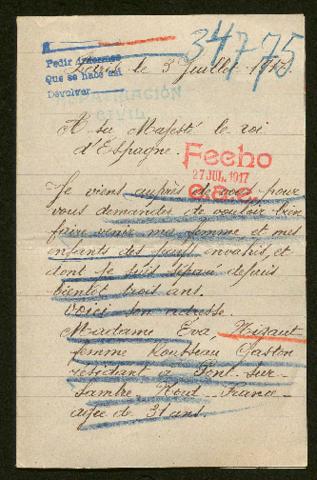 34775
Pedir informes
Que se hace así
Devolver
Paris le 3 Juillet 1917
CIVIL
A sa Majesté le roi
d'Espagne.
Fecho
27 JUL. 1917
Je viens auprès de vous pour
vous demander de vouloir bien
faire venir ma femme et mes
enfants des pays envahis, et
dont je suis séparé depuis
bientôt trois ans.
Voici son adresse.
Madame Eva Nizaut
femme Rousseau Gaston
résidant à Pont-sur-
Sambre Nord France
agée de 31 ans.